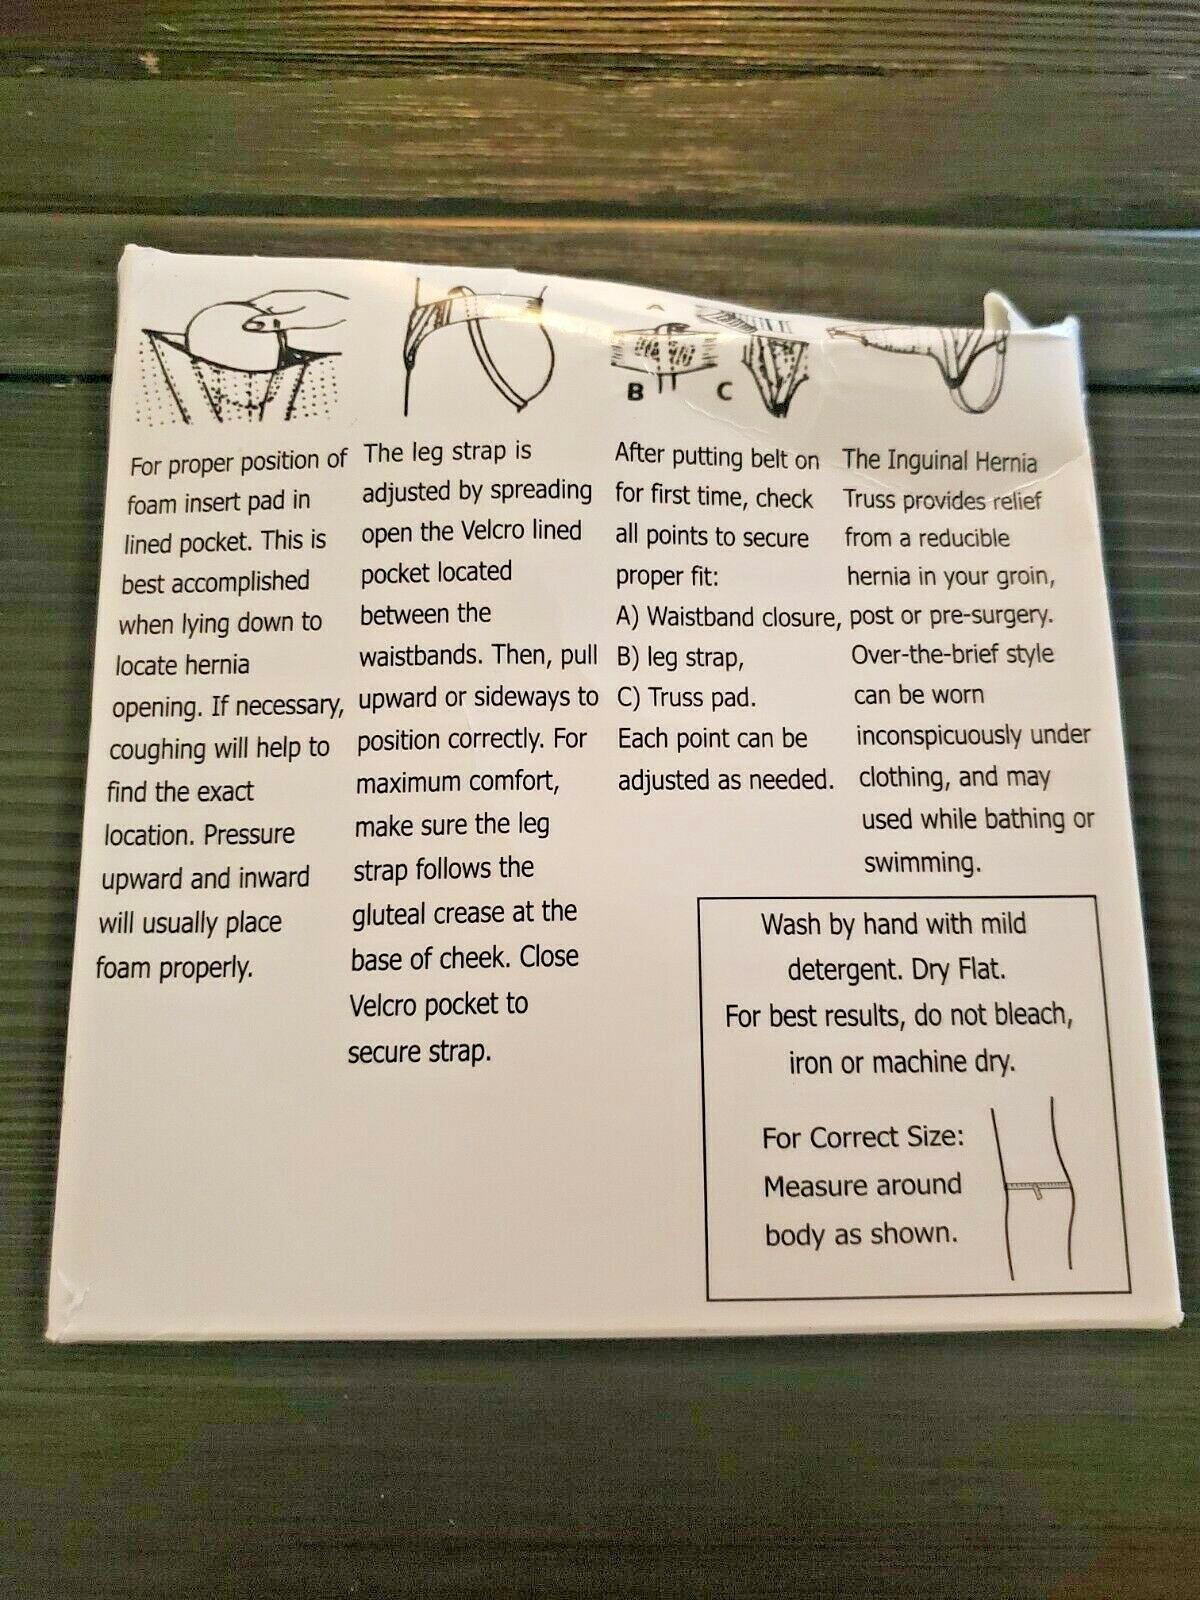 B
C
For proper position of
foam insert pad in
lined pocket. This is
best accomplished
when lying down to
locate hernia
opening. If necessary,
coughing will help to
find the exact
location. Pressure
upward and inward
will usually place
foam properly.
The leg strap is
adjusted by spreading
open the Velcro lined
pocket located
between the
waistbands. Then, pull
upward or sideways to
position correctly. For
maximum comfort,
make sure the leg
strap follows the
gluteal crease at the
base of cheek. Close
Velcro pocket to
secure strap.
After putting belt on
for first time, check
all points to secure
proper fit:
A) Waistband closure,
B) leg strap,
C) Truss pad.
Each point can be
adjusted as needed.
The Inguinal Hernia
Truss provides relief
from a reducible
hernia in your groin,
post or pre-surgery.
Over-the-brief style
can be worn
inconspicuously under
clothing, and may
used while bathing or
swimming.
Wash by hand with mild
detergent. Dry Flat.
For best results, do not bleach,
iron or machine dry.
For Correct Size:
Measure around
body as shown.